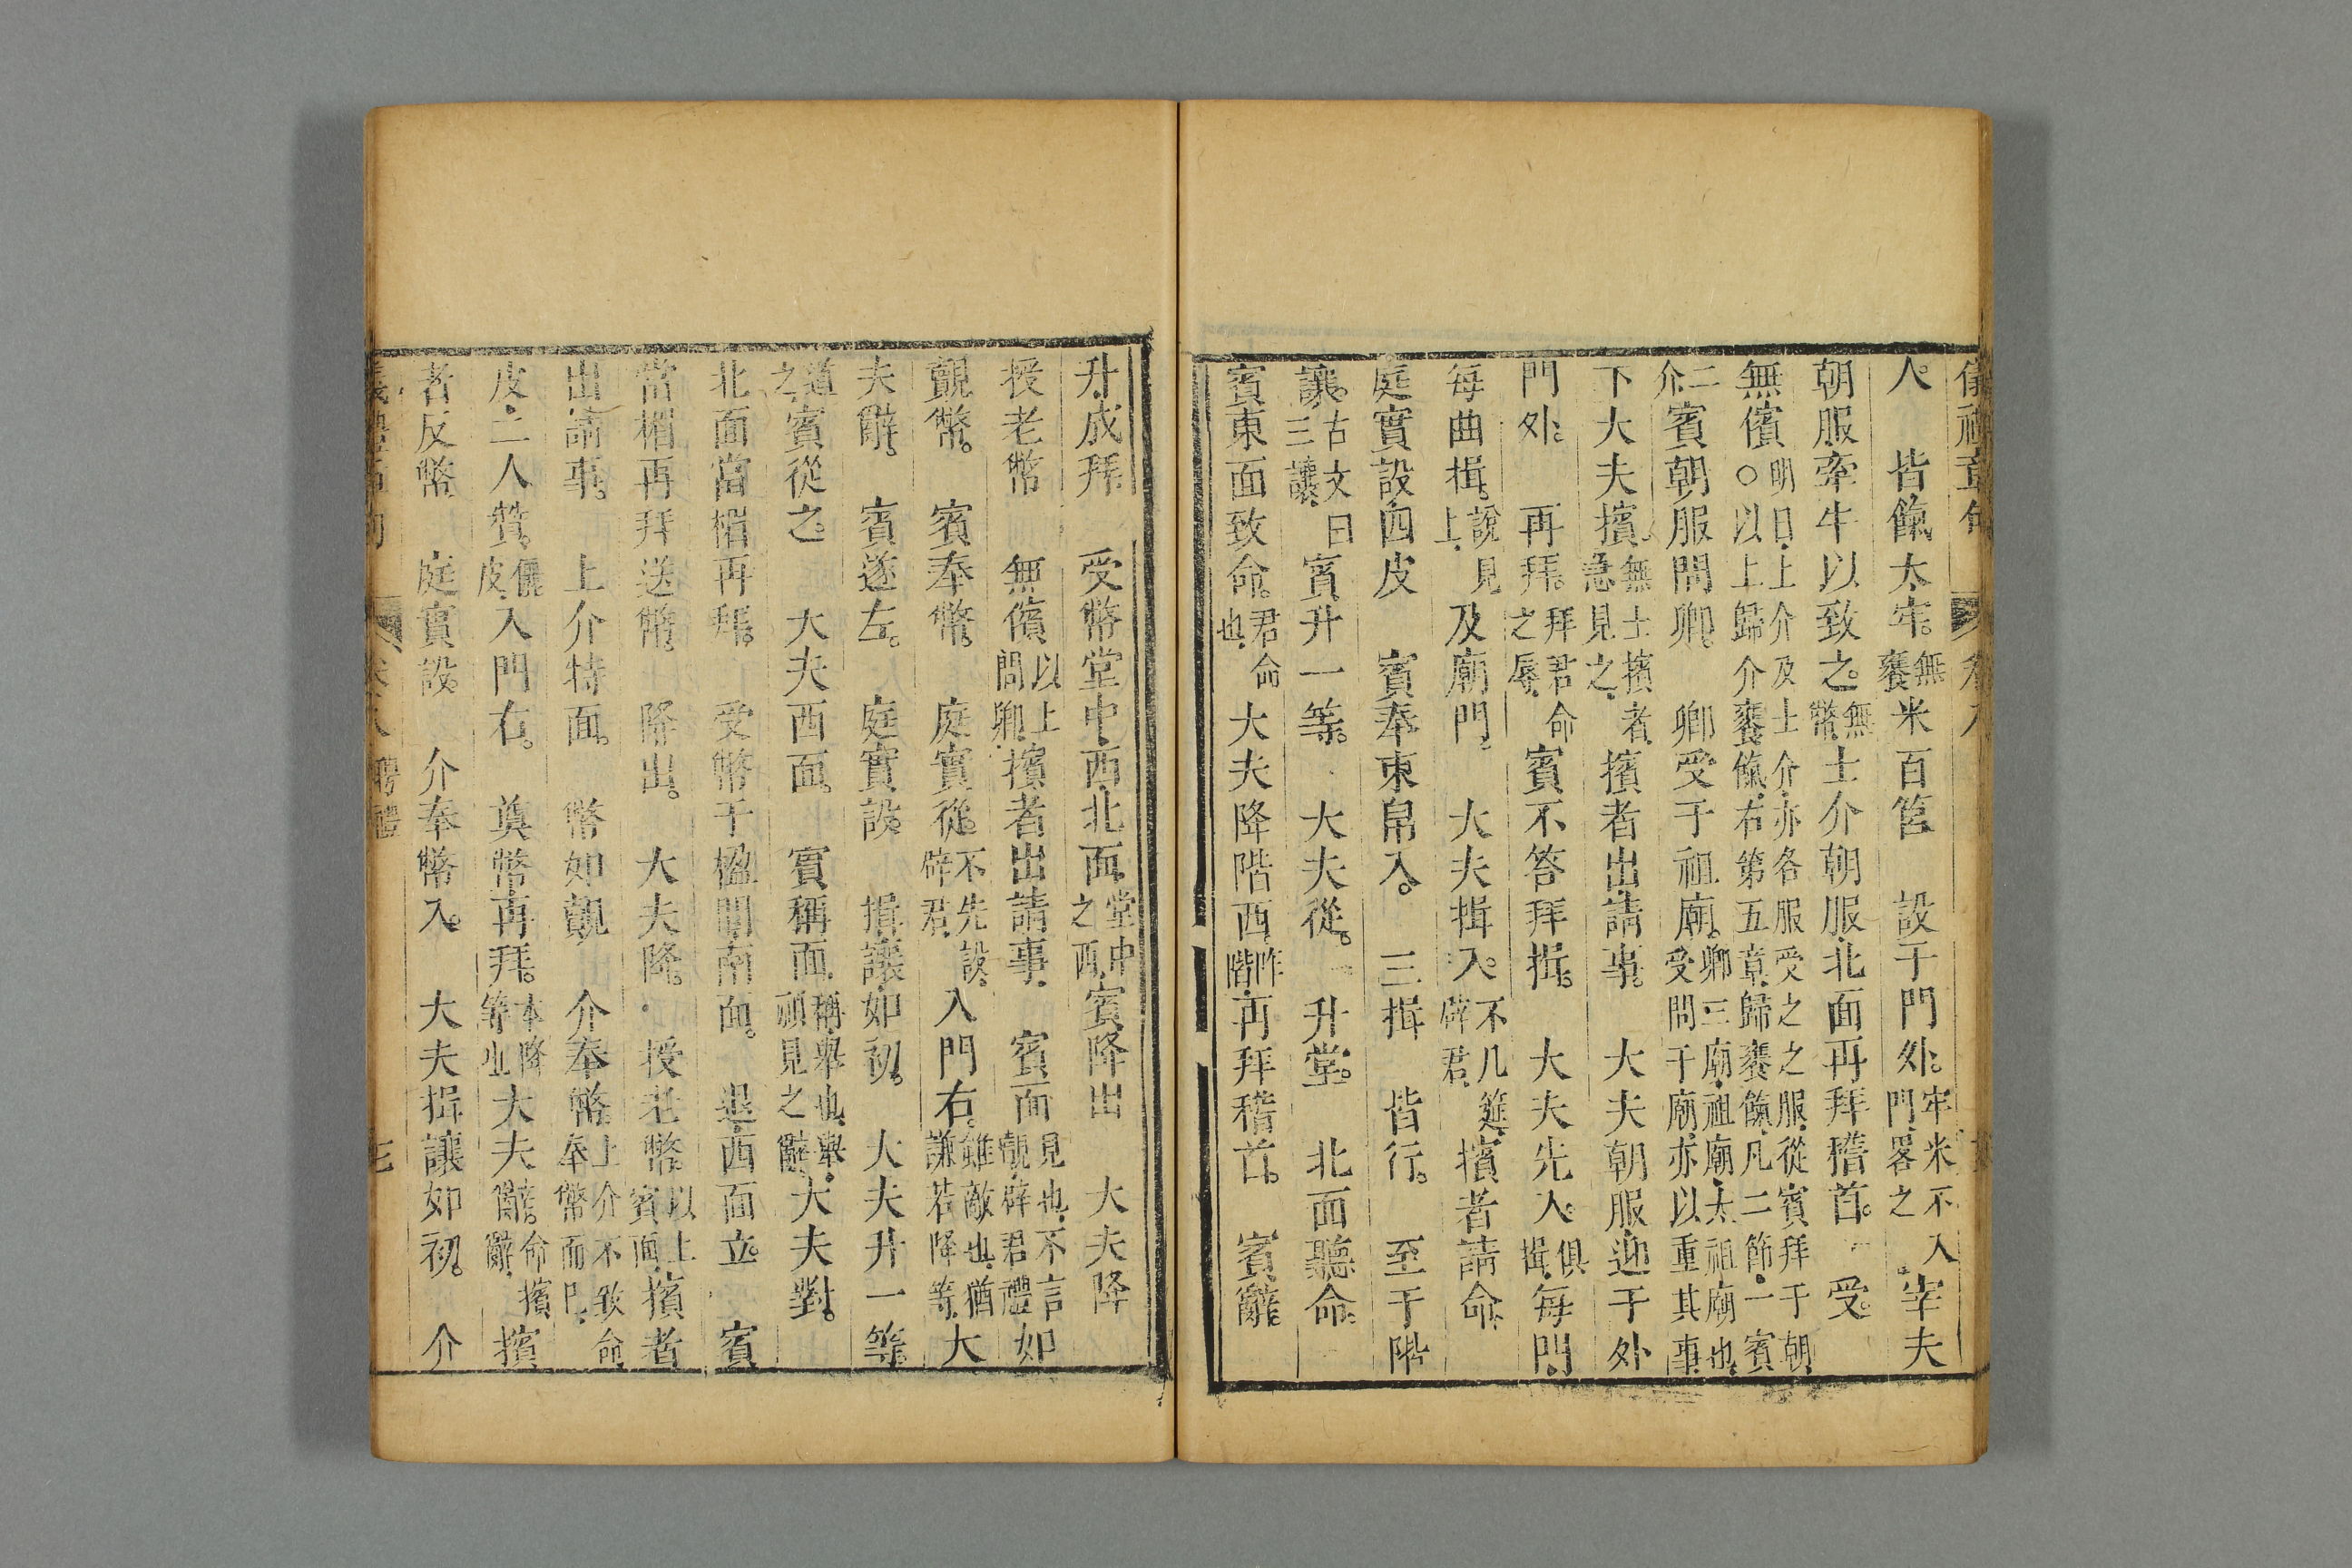 儀禮章句 卷八
人。 皆餼太牢。無饔米百筥 設于門外。牢米不入門畧之宰夫
朝服牽牛以致之。無幣士介朝服北面再拜稽首。受。
無儐明日上介及士介亦各服受之之服從賓拜于朝○以上歸介饔餼右第五章歸饔餼凡二節一賓
二介賓朝服問卿。 卿受于祖廟。卿三廟祖廟太祖廟也受問于廟亦以重其事
下大夫擯無士擯者急見之擯者出請事。 大夫朝服迎于外
門外。 再拜。拜君命之辱賓不答拜揖。 大夫先入。俱揖每門
每曲揖。說見上及廟門 大夫揖入。不几筵辟君擯者請命
庭實設四皮 賓奉束帛入。 三揖 皆行。 至于階
讓。古文曰三讓賓升一等。 大夫從。 升堂。 北面聽命
賓東面致命。君命也大夫降階西昨階再拜稽首。 賓辭。
升成拜 受幣堂中西北面堂中之西賓降出 大夫降
授老幣 無儐以上問卿擯者出請事 賓面見也不言覿辟君禮如
覿幣。 賓奉幣。 庭實從。不先設辟君入門右。雖敵也猶謙若降等大
夫辭。 賓遂左。 庭實設。 揖讓如初。 大夫升一等
道之賓從之。 大夫西面。 賓稱面稱舉也舉頃見之辭大夫對。
北面當楣再拜。 受幣于楹間南面。 退西面立 賓
當楣再拜送幣。 降出。 大夫降。 授老幣以上賓面擯者
出請事。 上介特面。 幣如覿 介奉幣上介不致命奉幣而已
皮二人贊。儷皮入門右。 奠幣再拜。本降等也大夫辭。命擯辭擯
者反幣 庭實設。 介奉幣入。 大夫揖讓如初。 介
卷八 聘禮 七